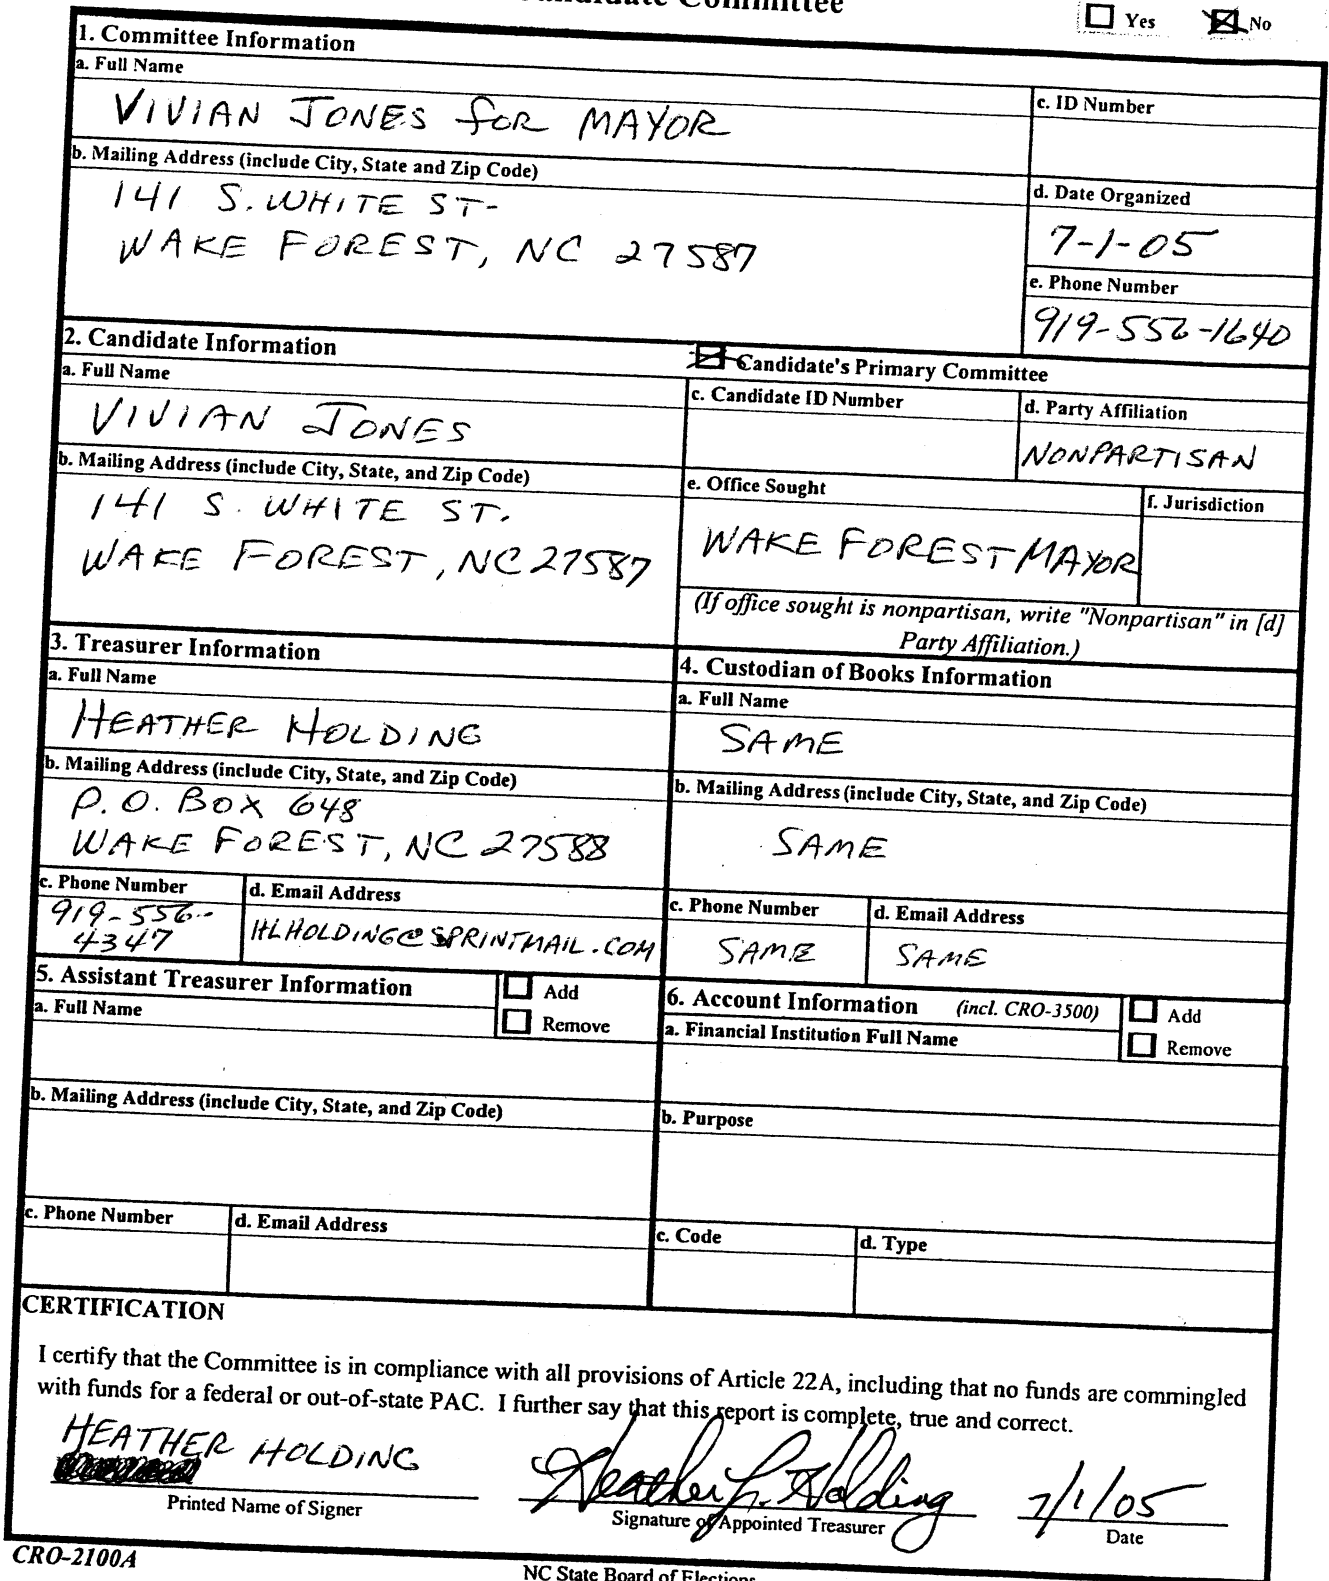 Candidate Committee
Yes No
1. Committee Information
a. Full Name
VIVIAN JONES for MAYOR
c. ID Number
b. Mailing Address (include City, State and Zip Code)
141 S. WHITE ST-
WAKE FOREST, NC 27587
d. Date Organized
7-1-05
e. Phone Number
919-556-1640
2. Candidate Information
Candidate's Primary Committee
a. Full Name
VIVIAN JONES
c. Candidate ID Number
d. Party Affiliation
NONPARTISAN
b. Mailing Address (include City, State, and Zip Code)
141 S. WHITE ST.
WAKE FOREST, NC 27587
e. Office Sought
WAKE FOREST MAYOR
f. Jurisdiction
(If office sought is nonpartisan, write "Nonpartisan" in [d]
Party Affiliation.)
3. Treasurer Information
a. Full Name
HEATHER HOLDING
b. Mailing Address (include City, State, and Zip Code)
P.O. BOX 648
WAKE FOREST, NC 27588
c. Phone Number
919-556-
4347
d. Email Address
HLHOLDING@SPRINTMAIL.COM
4. Custodian of Books Information
a. Full Name
SAME
b. Mailing Address (include City, State, and Zip Code)
SAME
c. Phone Number
SAME
d. Email Address
SAME
5. Assistant Treasurer Information
Add
Remove
a. Full Name
b. Mailing Address (include City, State, and Zip Code)
c. Phone Number
d. Email Address
6. Account Information (incl. CRO-3500)
Add
Remove
a. Financial Institution Full Name
b. Purpose
c. Code
d. Type
CERTIFICATION
I certify that the Committee is in compliance with all provisions of Article 22A, including that no funds are commingled
with funds for a federal or out-of-state PAC. I further say that this report is complete, true and correct.
HEATHER HOLDING
Printed Name of Signer
Heather L. Holding
Signature of Appointed Treasurer
7/1/05
Date
CRO-2100A
NC State Board of Elections